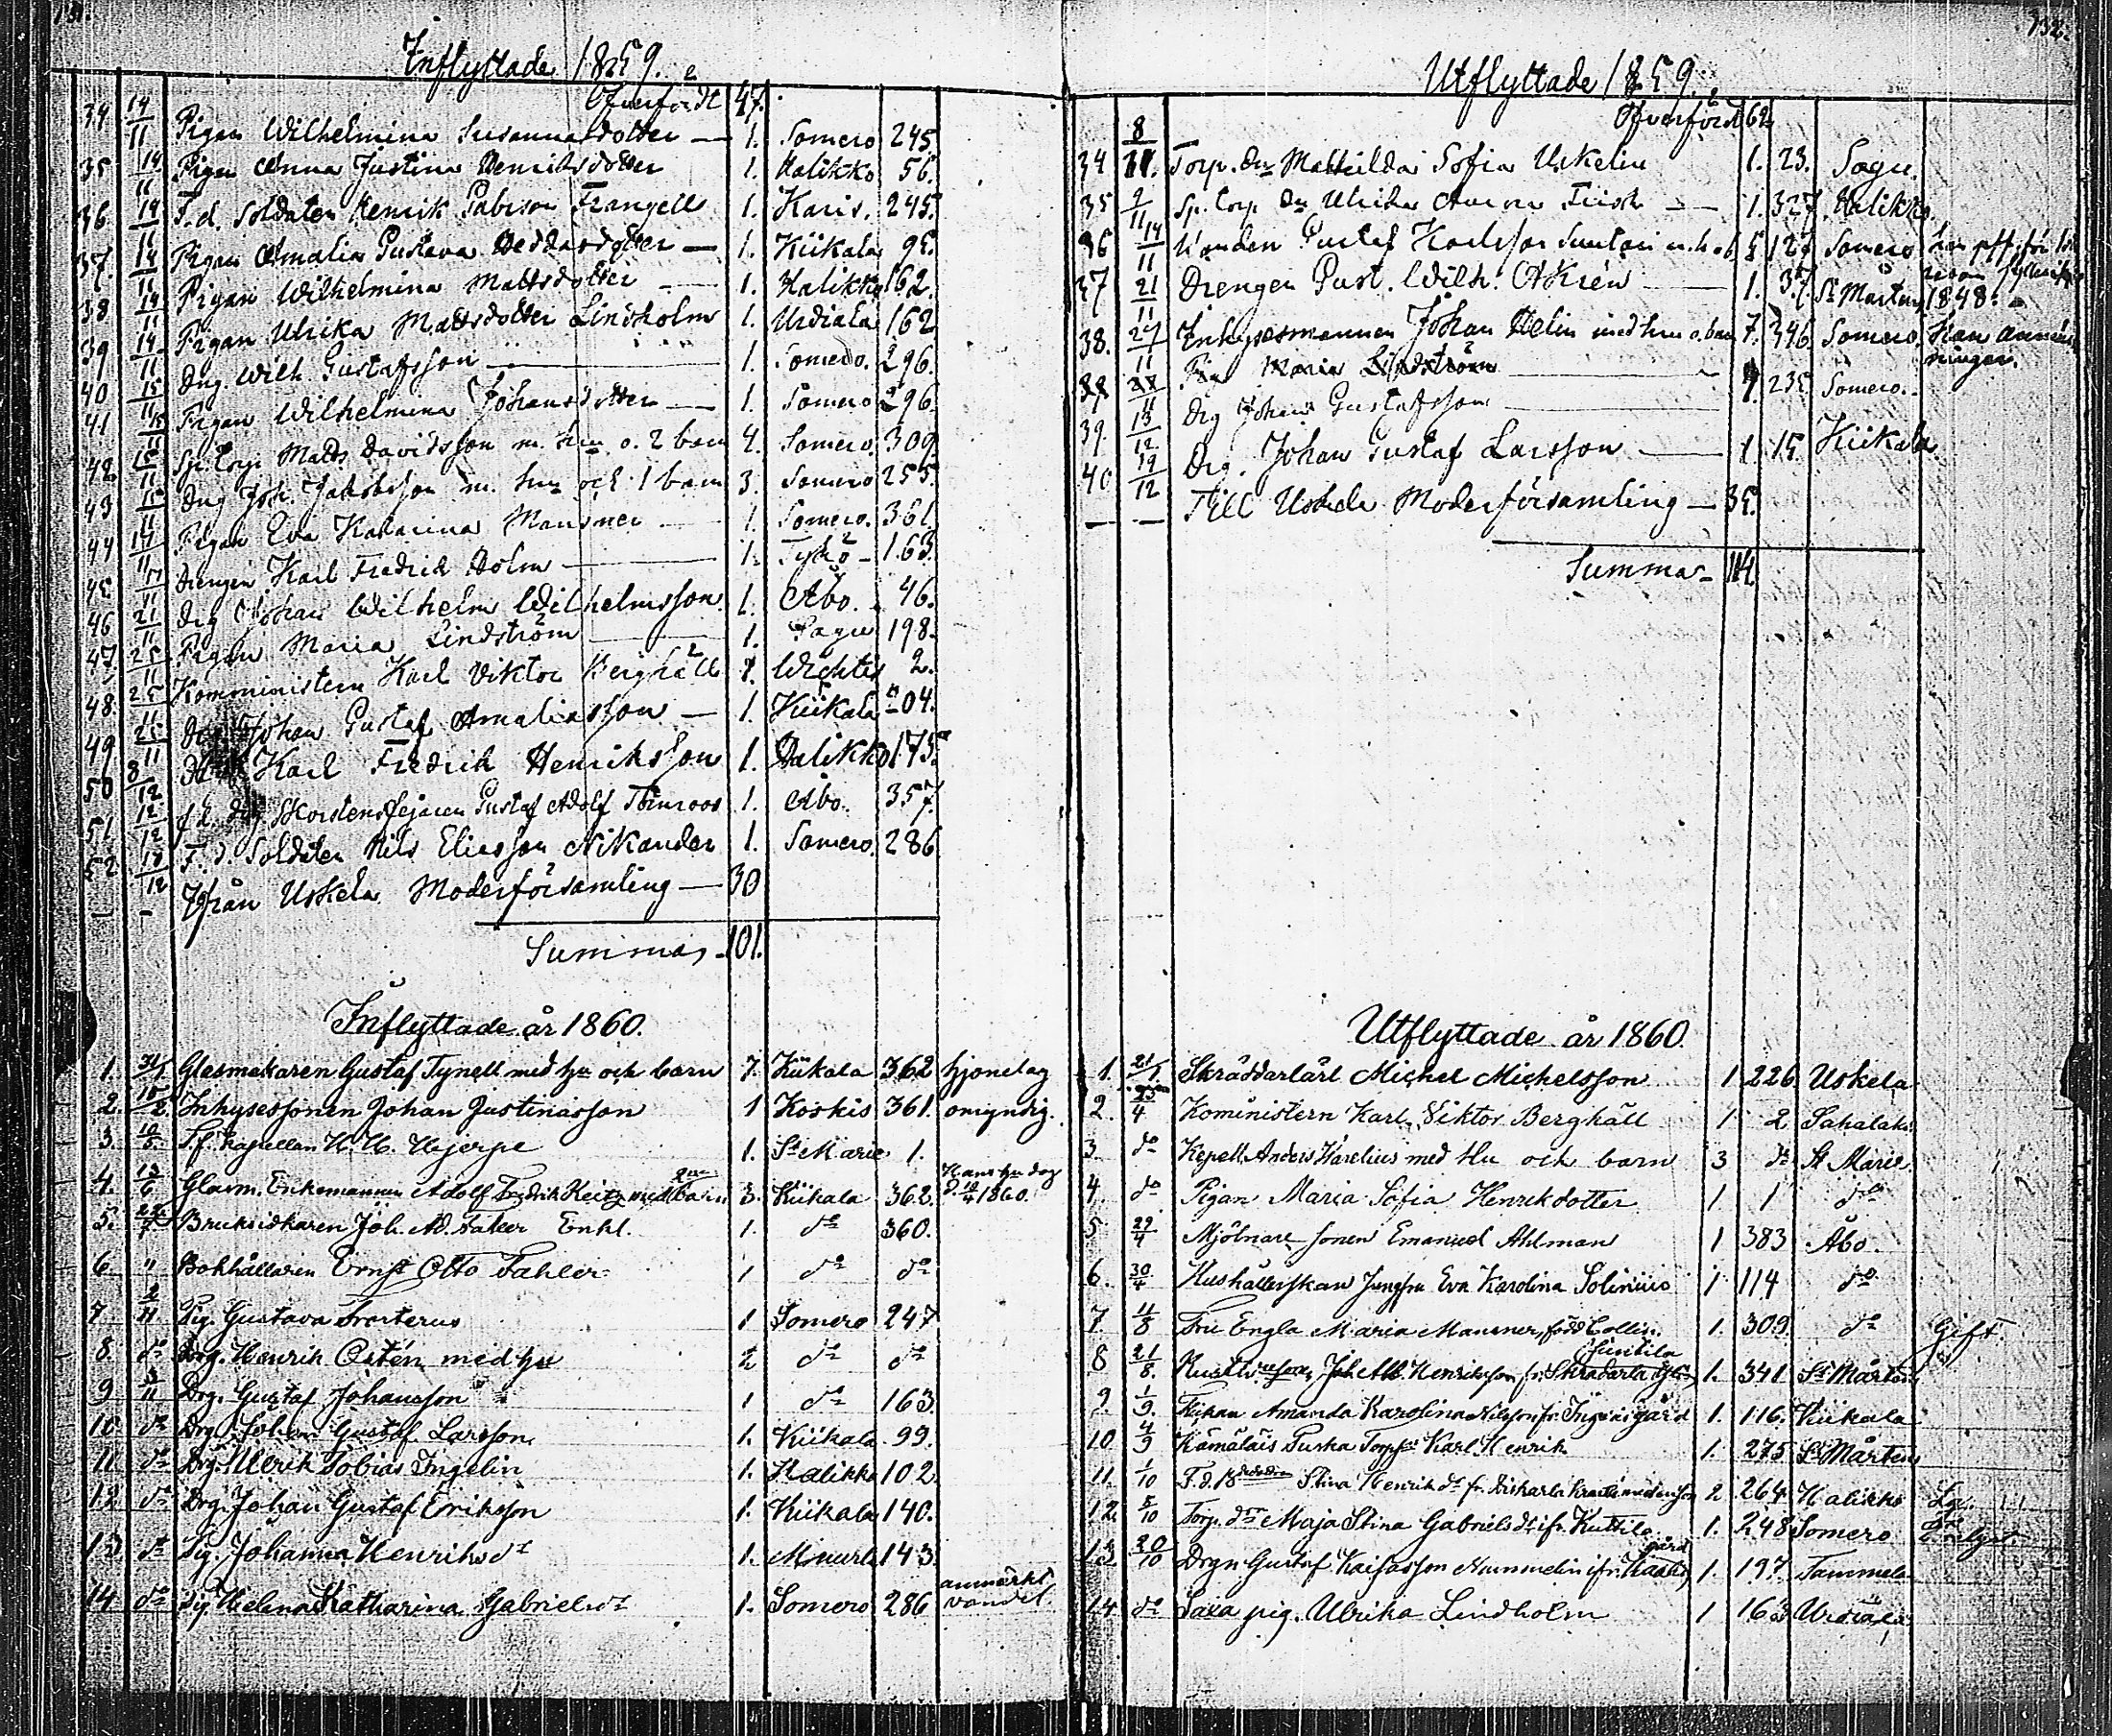 131.
Inflyttade 1859.
Öfverfördt 47.
34 14/11 Pigan Wilhelmina Susannasdotter — 1. Somero 245
35 14/11 Pigan Anna Justina Henriksdotter 1. Halikko 56.
36 14/11 F.d. Soldaten Henrik Frangell 1. Karis. 245.
37. 14/11 Pigan Amalia Gustava Heddasdotter — 1. Kiikala 95.
38 14/11 Pigan Wilhelmina Mattsdotter — 1. Halikko 162.
39 14/11 Pigan Ulrika Mattsdotter Lindholm 1. Urdiala 162
40 15/11 Dng. Wilh. Gustafsson — 1. Somero. 296.
41 15/11 Pigan Wilhelmina Johansdotter — 1. Somero 296.
42 15/11 Sp. torp. Matts Davidsson m. hu o. 2 barn 4. Somero. 309.
43 15/11 Dng Joh. Jakobsson m. hu och 1 barn 3. Somero 255.
44 17/11 Pigan Eva Katarina Mansner — 1. Somero. 361.
45 17/11 Drengen Karl Fredrik Holm — 1. Tykö — 163.
46 21/11 Drg Johan Wilhelm Wilhelmsson. 1. Åbo. 46.
47. 25/11 Pigan Maria Lindström — 1. Sagu 198.
48. 25/11 Komministern Karl Viktor Berghäll 1. Wichtis 2.
49 25/11 Johan Gustaf Amaliasson — 1. Kiikala 04.
50 8/12 Karl Fredrik Henriksson 1. Halikko 175.
51. 12/12 f.d. Skorstensfejaren Gustaf Adolf Törnroos 1. Åbo. 357.
52 18/12 F.d. Soldaten Nils Eliesson Nikander 1. Somero. 286
— - Ifrån Uskela Moderförsamling — 30
Summa — 101.
Inflyttade år 1860.
1. 31/1 Glasmakaren Gustaf Tynell med hu och barn 7. Kiikala 362 hjonelag
2. 15/2 Inhysessonen Johan Justinasson 1 Koskis 361. omyndig.
3. 10/5 Kapellan H. H. Hjerpe 1. St Marie 1.
4. 13/6 Glasm. Enkemannen Adolf Fredrik Keitz med 2ne barn 3. Kiikala 362. Hans hu dog d. 10/4 1860.
5. 22/7 Joh. Ad. Fahler Enkl. 1. do 360.
6. " Bokhållaren Ernst Otto Fahler 1 do do
7. 2/11 Pig. Gustava Frosterus 1 Somero 247
8. do Drg. Henrik Östén med hu 2 do do
9 3/11 Drg. Gustaf Johansson 1 do 163.
10. do Drg. Johan Gustaf Larsson 1. Kiikala 99.
11. do Drg. Ulrik Tobias Ingelin 1. Halikko 102.
12 do Drg. Johan Gustaf Eriksson 1. Kiikala 140.
13. do Pig. Johanna Henriksdt 1. Muurla 143.
14 do Pig. Helena Katharina Gabrielsdt 1. Somero 286 anmärkt vandel.
132.
Utflyttade 1859.
Öfverfördt 62.
34 8/11. Torp. dr Mathilda Sofia Uskelin 1. 23. Sagu.
35 9/11 Sp. torp dr Ulrika Anna Frisk — 1. 327. Halikko
36 14/11 Gustaf Karlsson Suutari 5 127 Somero
37 21/11 Drengen Gust. Wilh. Åkrén — 1. 37. St Mårtens 1848.
38. 27/11 Inhysesmannen Johan Helin med hu o. barn 7. 346. Somero. Han anmärkningar.
Maria Lindström —
39. 13/12 Drg Johan Gustafsson — 1. 235 Somero.
40 19/12 Drg. Johan Gustaf Larsson — 1. 15 Kiikala
— — Till Uskela Moderförsamling — 35.
Summa — 114.
Utflyttade år 1860.
1. 21/1 Skräddarlärl Michel Michelsson 1 226. Uskela
2. 25/4 Koministern Karl Viktor Berghäll 1 2 Sahalaks
3 do Kapell. Anders Karelius med Hu och barn 3 do St Marie
4. do Pigan Maria Sofia Henriksdotter 1 1 do
5 29/4 Mjölnare sonen Emanuel Ahlman 1 383 Åbo.
6. 30/4 Hushållerskan Jungfru Eva Karolina Solinius 1 114 do
7. 11/8 Fru Engla Maria Mansner, född Collin. 1. 309 do Gift.
8 21/8. Joh. Henriksson fr. Skradarla 1. 341. St Mårtens
9. 1/9. Flickan Amanda Karolina Nilsson fr. Ingerisgård 1. 116. Kiikala
10 4/9 Kämäläis Puska Torpson Karl Henrik 1. 275 St Mårtens
11. 1/10 Stina Henriksdt fr. 2 264 Halikko
12. 8/10 Torp. dr Maja Stina Gabrielsdt ifr. Kuttila 1. 248 Somero
13. 20/10 Drgn Gustaf Kaisasson Nummelin ifr. gård 1. 197. Tammela
14. do Saxa pig. Ulrika Lindholm 1 163 Urdiala